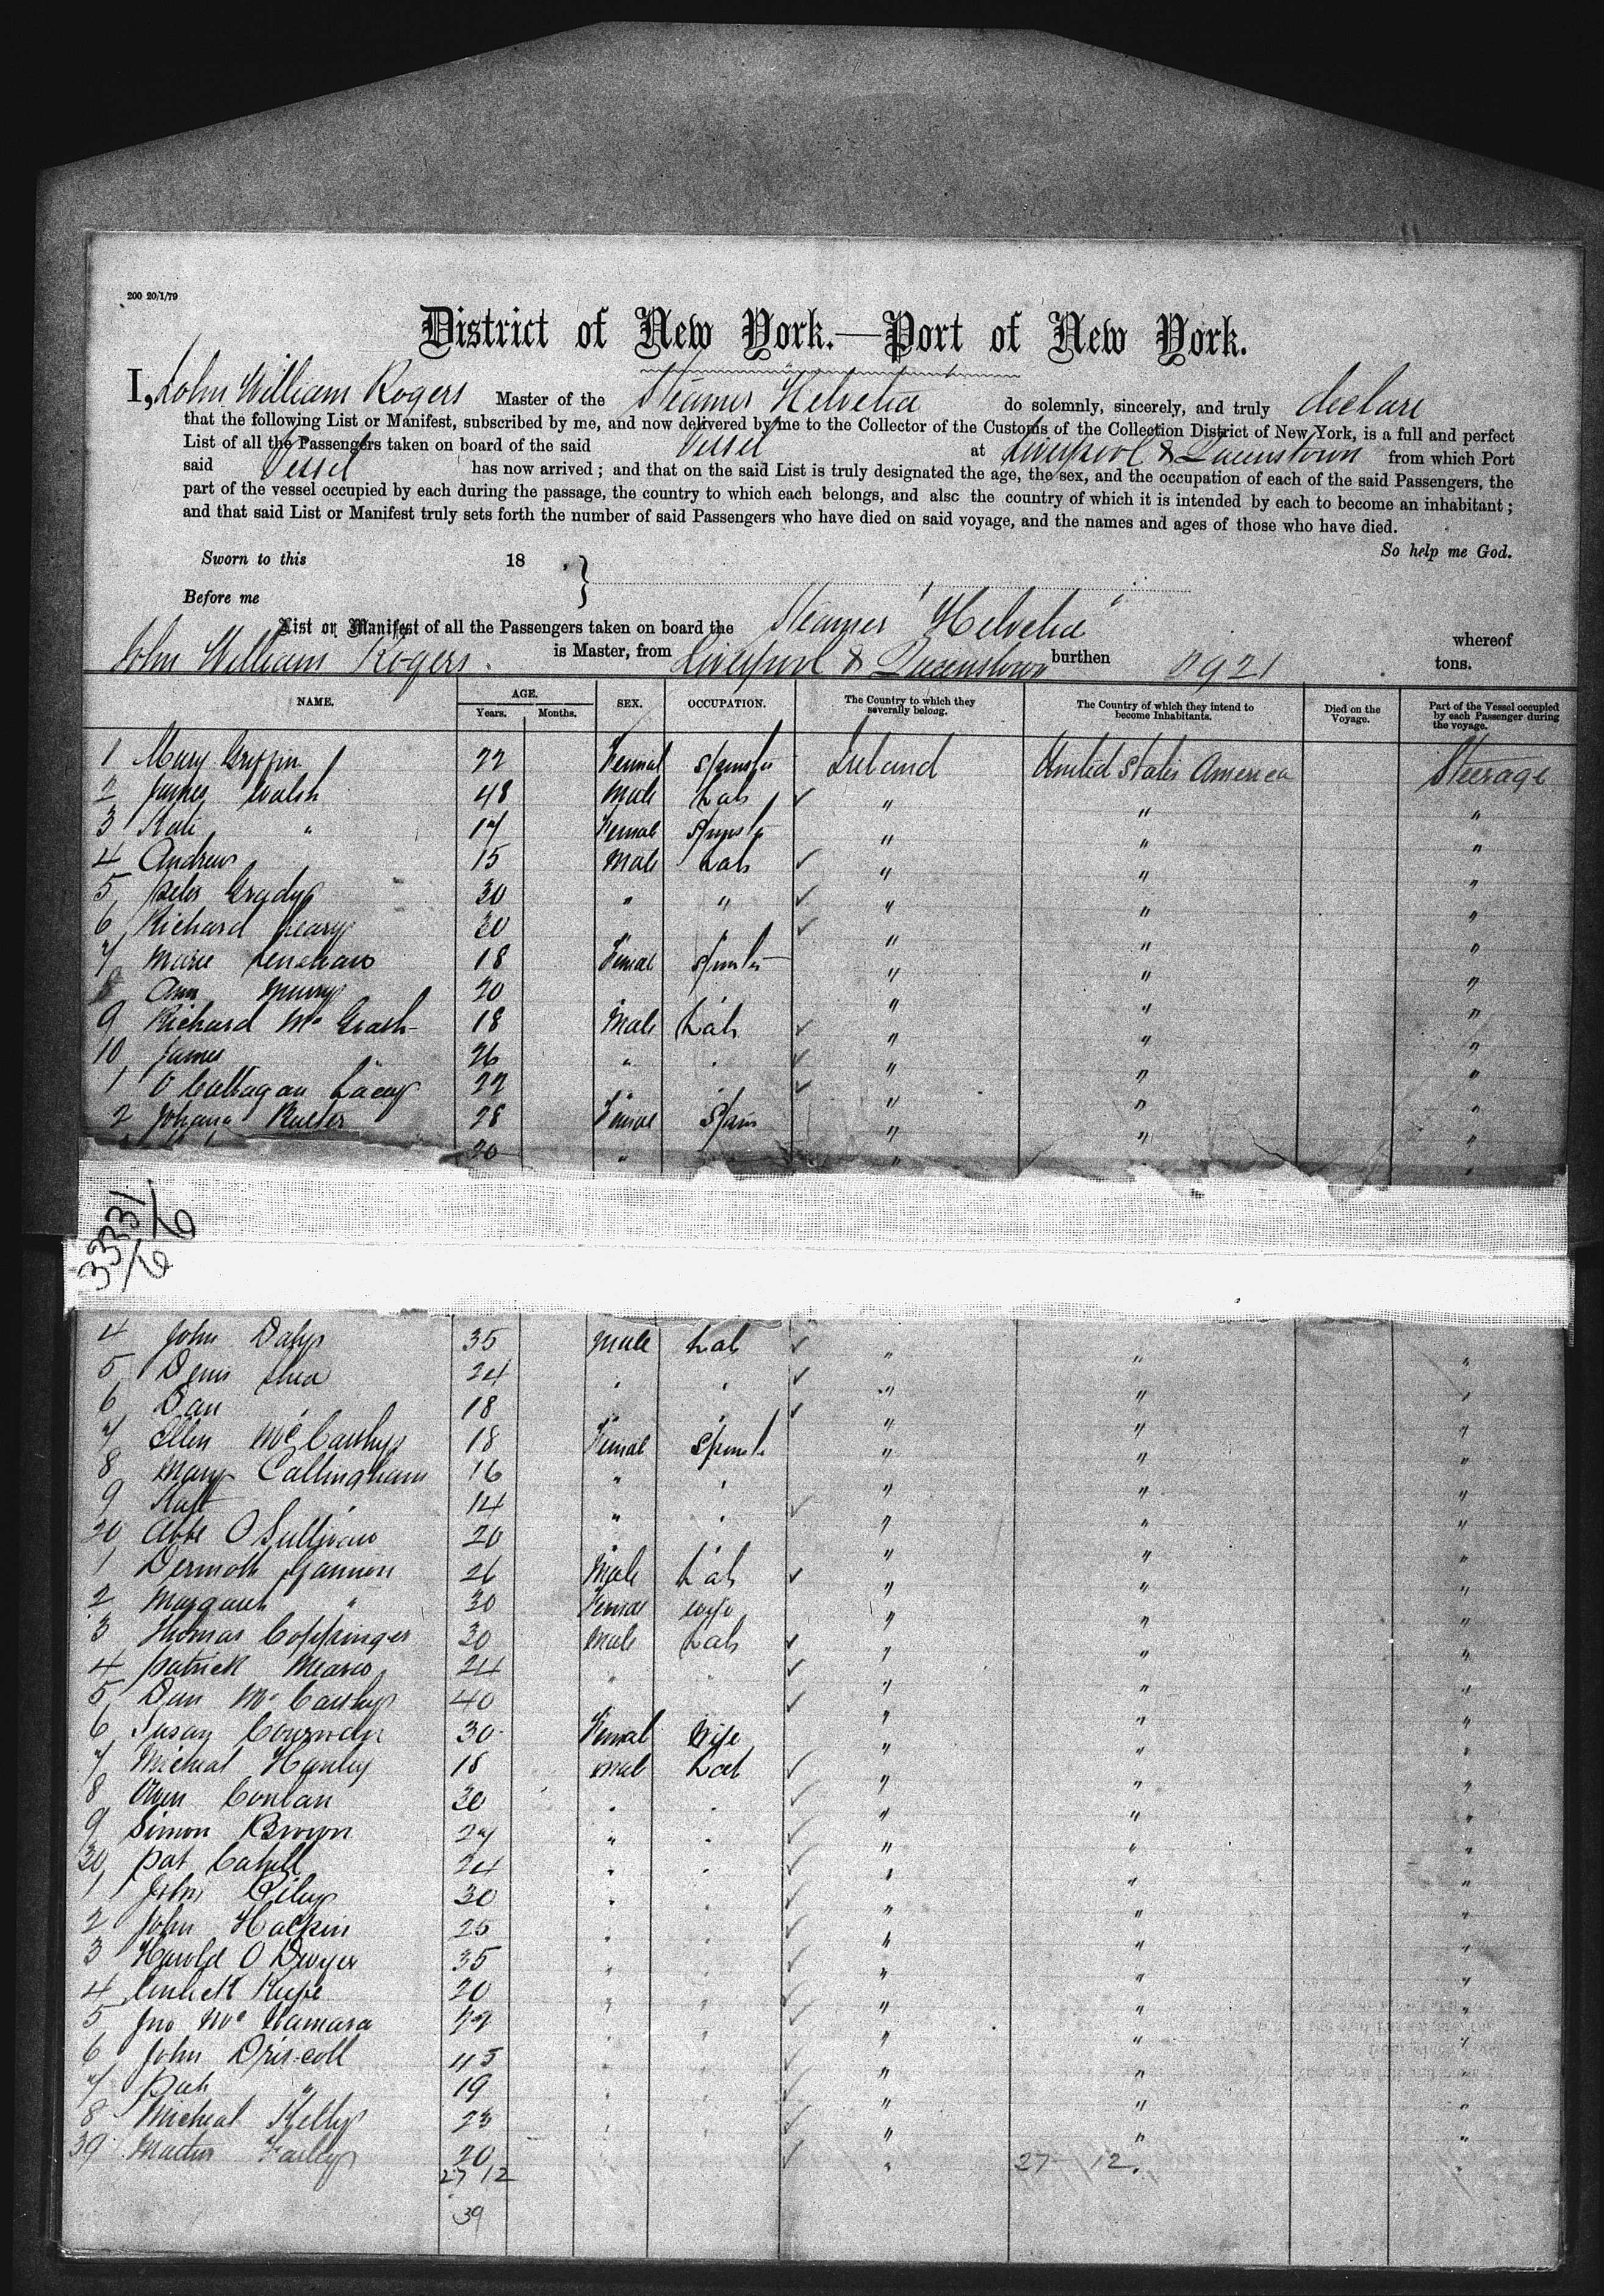 200 20/1/79
District of New York.—Port of New York.
I, John William Rogers Master of the Steamer Helvetia do solemnly, sincerely, and truly declare
that the following List or Manifest, subscribed by me, and now delivered by me to the Collector of the Customs of the Collection District of New York, is a full and perfect
List of all the Passengers taken on board of the said Vessel at Liverpool & Queenstown from which Port
said Vessel has now arrived ; and that on the said List is truly designated the age, the sex, and the occupation of each of the said Passengers, the
part of the vessel occupied by each during the passage, the country to which each belongs, and also the country of which it is intended by each to become an inhabitant ;
and that said List or Manifest truly sets forth the number of said Passengers who have died on said voyage, and the names and ages of those who have died.
So help me God.
Sworn to this 18 .
Before me
List or Manifest of all the Passengers taken on board the Steamer "Helvetia" whereof
John William Rogers. is Master, from Liverpool & Queenstown burthen tons.
NAME. AGE. SEX. OCCUPATION. The Country to which they severally belong. The Country of which they intend to become Inhabitants. Died on the Voyage. Part of the Vessel occupied by each Passenger during the voyage.
Years. Months.
1 Mary Griffin 22 Femal Spinster Ireland United States America Steerage
2 James Walsh 48 Male Lab ✓ " " "
3 Kate " 17 Female " " "
4 Andrew 15 Male Lab ✓ " " "
5 Peter Grady 30 " " ✓ " " "
6 Richard Geary 30 " " ✓ " " "
7 Marie 18 Femal Spinster " " "
8 Ann 20 " " "
9 Richard McGrath 18 Male Lab ✓ " " "
10 James 26 " " ✓ " " "
1 O Callagan Lacey 22 " " ✓ " " "
2 Johana Butler 28 Femal Spins " " "
20 " " "
3331/6
/6
4 John Daly 35 Male Lab ✓ " " "
5 Denis Shea 24 " " ✓ " " "
6 Dan " 18 " " ✓ " " "
7 Ellen McCarthy 18 Femal " " "
8 Mary Callingham 16 " " " " "
9 Kate " 14 " " ✓ " " "
20 Abbe O Sullivan 20 " " " " "
1 Dermoth Gannon 26 Male Lab ✓ " " "
2 Margaret " 30 Femal wife " " "
3 Thomas Coppinger 30 Male Lab ✓ " " "
4 Patrick 24 " " ✓ " " "
5 McCarthy 40 ✓ " " "
6 Susan 30 Femal Wife " " "
7 Micheal Hanley 18 Male Lab ✓ " " "
8 Owen Conlan 30 " " ✓ " " "
9 Simon Brown 27 " " ✓ " " "
30 Pat Cahill 24 " " ✓ " " "
1 John Riley 30 " " ✓ " " "
2 John Halpin 25 " " ✓ " " "
3 Harold O Dwyer 35 " " ✓ " " "
4 20 " " ✓ " " "
5 Jno McNamara 22 " " " " "
6 John Driscoll 45 " " ✓ " " "
7 Pat " 19 " " ✓ " " "
8 Micheal Kelly 23 " " ✓ " " "
39 Martin Farley 20 ✓ " 27 12. "
27 12
39